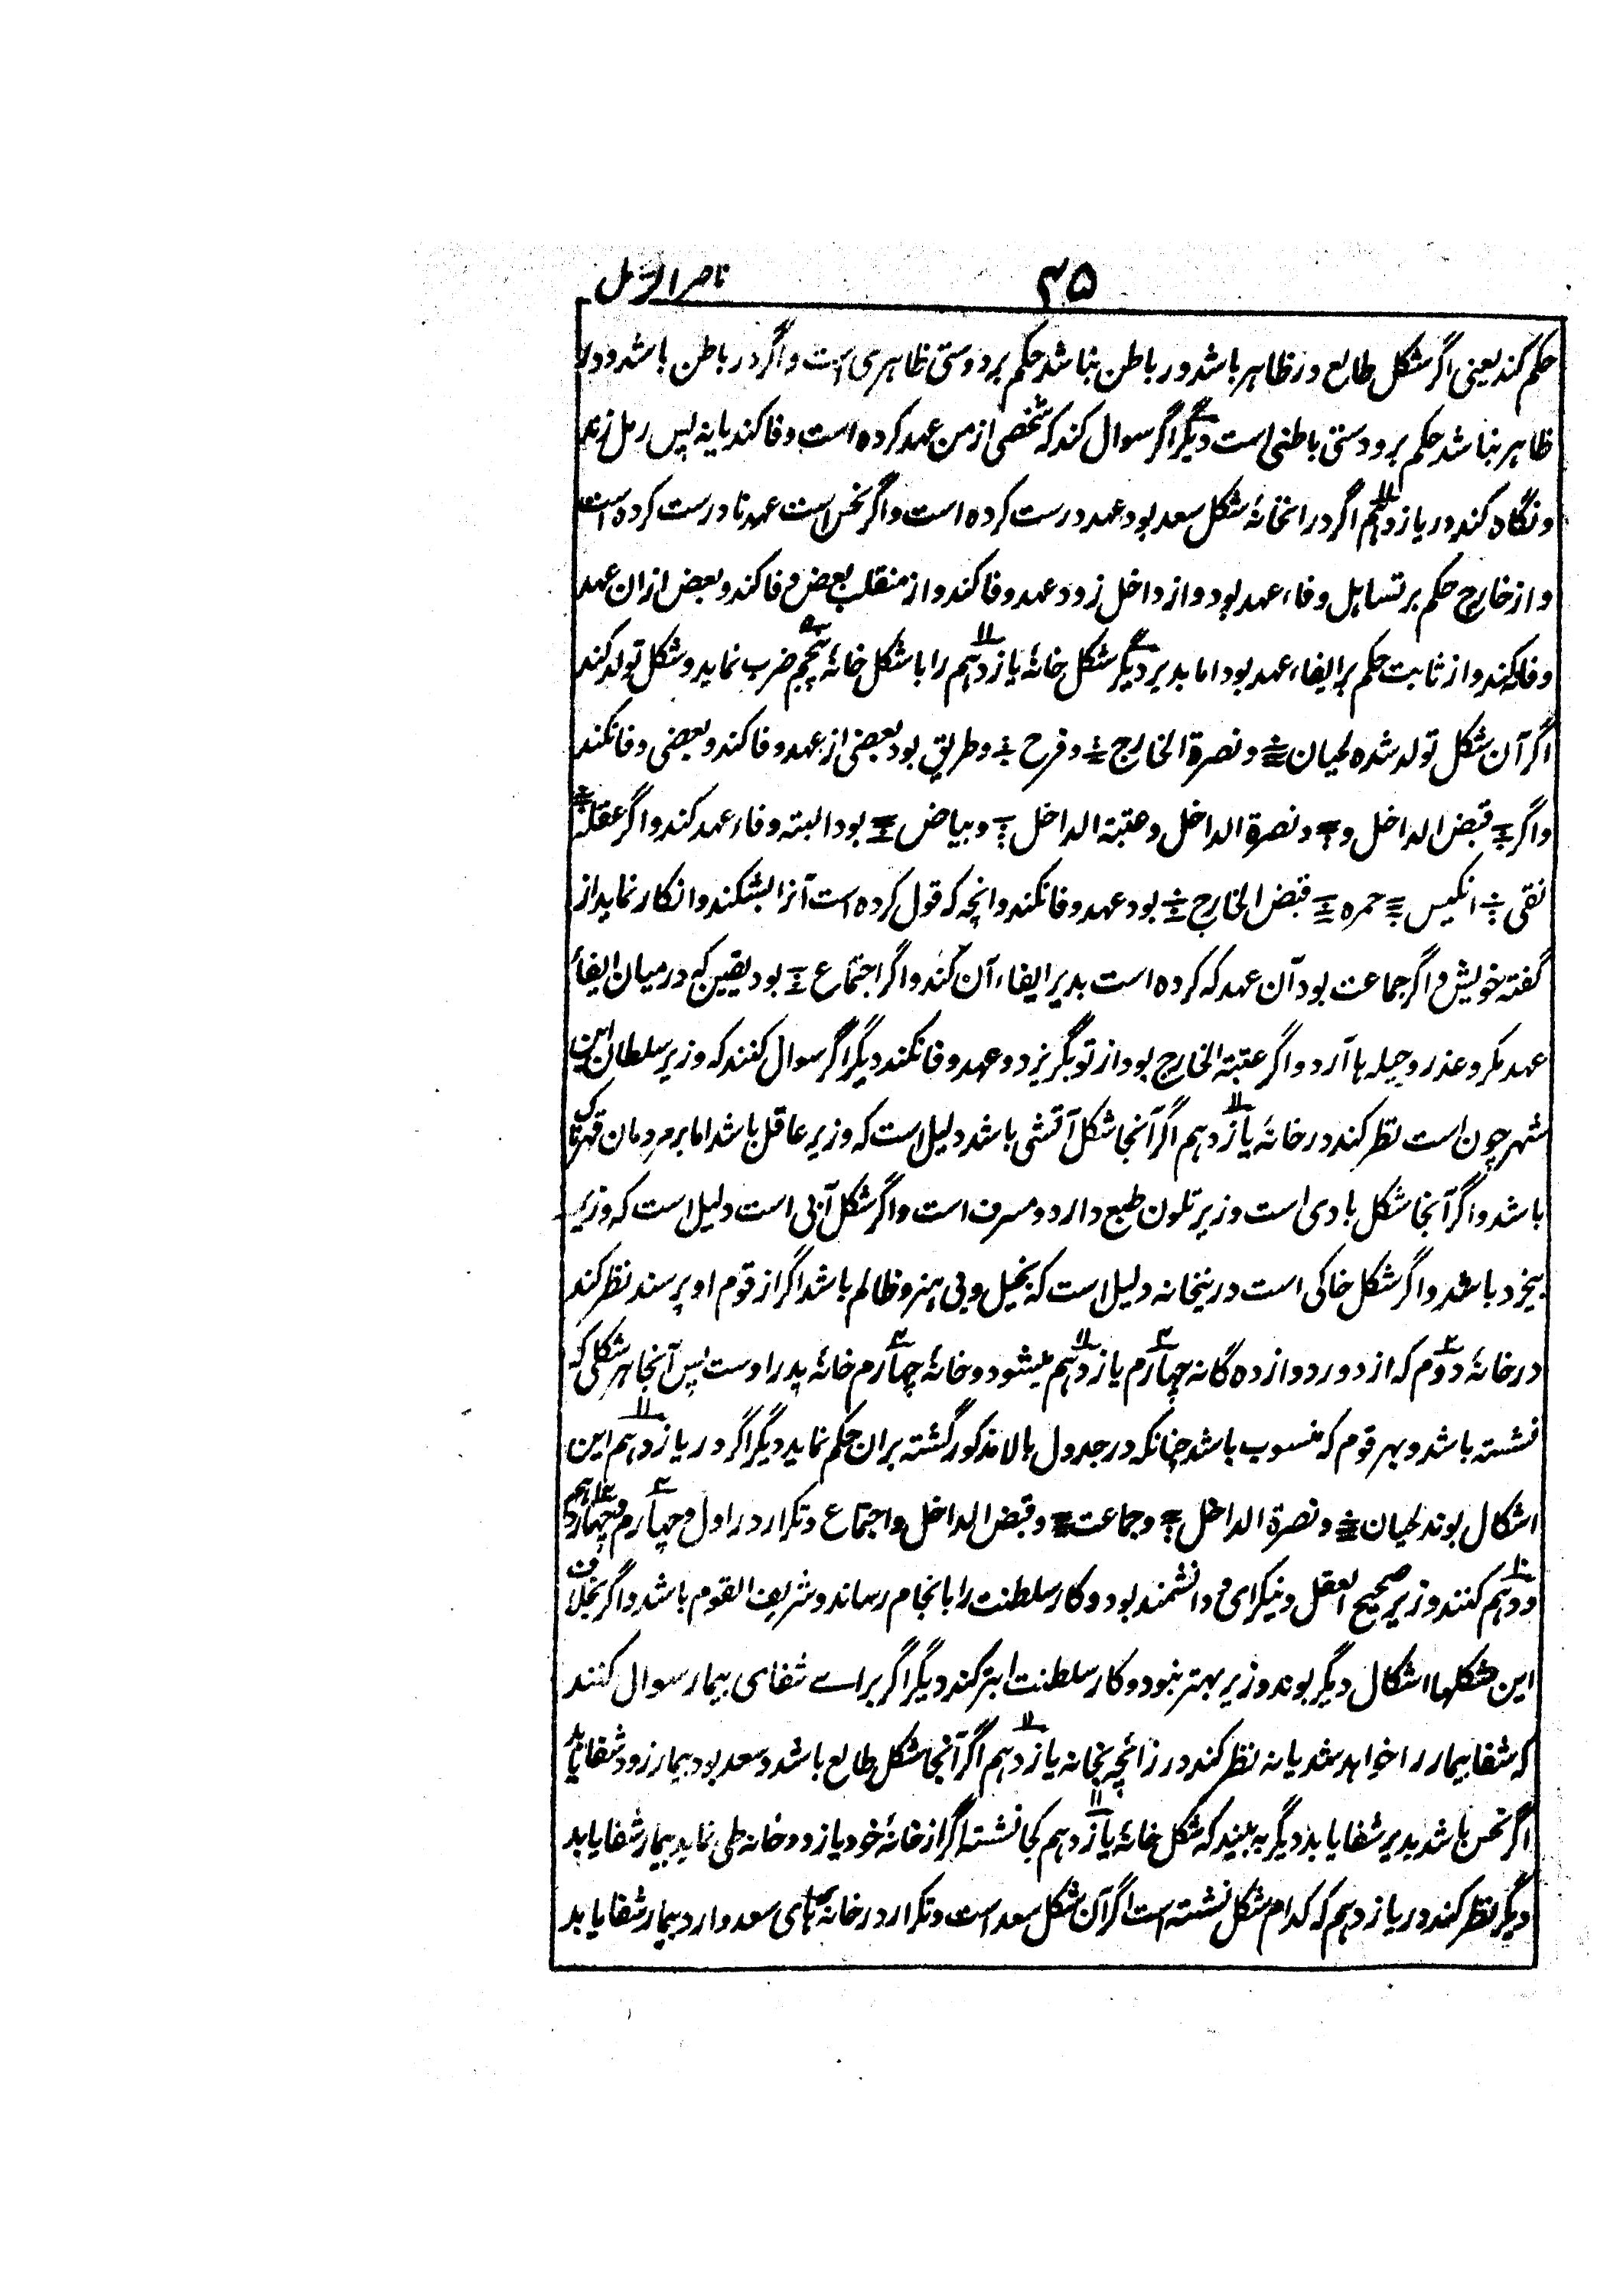 ۳۵ ناصر الرمل
حکم کند یعنی اگر شکل طالع در ظاهر باشد و در باطن نباشد حکم بر دوستی ظاهری است و اگر در باطن باشد و در
ظاهر نباشد حکم بر دوستی باطنی است دیگر اگر سوال کند که شخصی از من عهد کرده است وفا کند یا نه پس رمل زند
و نگاه کند در یازدهم اگر در انخانهٔ شکل سعد بود عهد درست کرده است و اگر نحس است عهد نادرست کرده است
و از خارج حکم بر تساهل وفاء عهد بود و از داخل زود عهد وفا کند و از منقلب بعض وفا کند و بعض ازان عهد
وفا نکند و از ثابت حکم بر ایفاء عهد بود اما بدیر دیگر شکل خانهٔ یازدهم را با شکل خانهٔ پنجم ضرب نماید و شکل تولد کند
اگر آن شکل تولد شده لحیان و نصرة الخارج و فرح و طریق بود بعضی از عهد وفا کند و بعضی وفا نکند
و اگر قبض الداخل و نصرة الداخل و عتبة الداخل و بیاض بود البته وفاء عهد کند و اگر عقله
نقی انکیس حمره قبض الخارج بود عهد وفا نکند و انچه که قول کرده است آنرا بشکند و انکار نماید از
گفته خویش و اگر جماعت بود آن عهد که کرده است بدیر ایفاء آن کند و اگر اجتماع بود یقین که در میان ایفاء
عهد مکر و عذر و حیله ها آرد و اگر عتبة الخارج بود از تو بگریزد و عهد وفا نکند دیگر اگر سوال کنند که وزیر سلطان این
شهر چون است نظر کند در خانهٔ یازدهم اگر آنجا شکل آتشی باشد دلیل است که وزیر عاقل باشد اما بر مردمان قهرناک
باشد و اگر آنجا شکل بادی است وزیر تلون طبع دارد و مسرف است و اگر شکل آبی است دلیل است که وزیر
بیخرد باشد و اگر شکل خاکی است درینخانه دلیل است که بخیل و بی هنر و ظالم باشد اگر از قوم او پرسند نظر کند
در خانهٔ دوم که از دور دوازده گانه چهارم یازدهم میشود و خانهٔ چهارم خانهٔ پدر اوست پس آنجا هر شکلی که
نشسته باشد و بهر قوم که منسوب باشد چنانکه در جدول بالا مذکور گشته بران حکم نماید دیگر اگر در یازدهم این
اشکال بوند لحیان و نصرة الداخل و جماعت و قبض الداخل و اجتماع و تکرار در اول و چهارم و چهاردهم
و دهم کنند وزیر صحیح العقل و نیکرای و دانشمند بود و کار سلطنت را بانجام رساند و شریف القوم باشد و اگر بخلاف
این شکلها اشکال دیگر بوند وزیر بهتر نبود و کار سلطنت ابتر کند دیگر اگر براے شفای بیمار سوال کنند
که شفا بیمار را خواهد شد یا نه نظر کند در زائچه بخانه یازدهم اگر آنجا شکل طالع باشد و سعد بود بیمار زود شفا یابد
اگر نحس باشد بدیر شفا یابد دیگر به بیند که شکل خانهٔ یازدهم کجا نشسته اگر از خانهٔ خود یازده خانه طی نماید بیمار شفا یابد
دیگر نظر کند در یازدهم که کدام شکل نشسته است اگر آن شکل سعد است و تکرار در خانه های سعد دارد بیمار شفا یابد